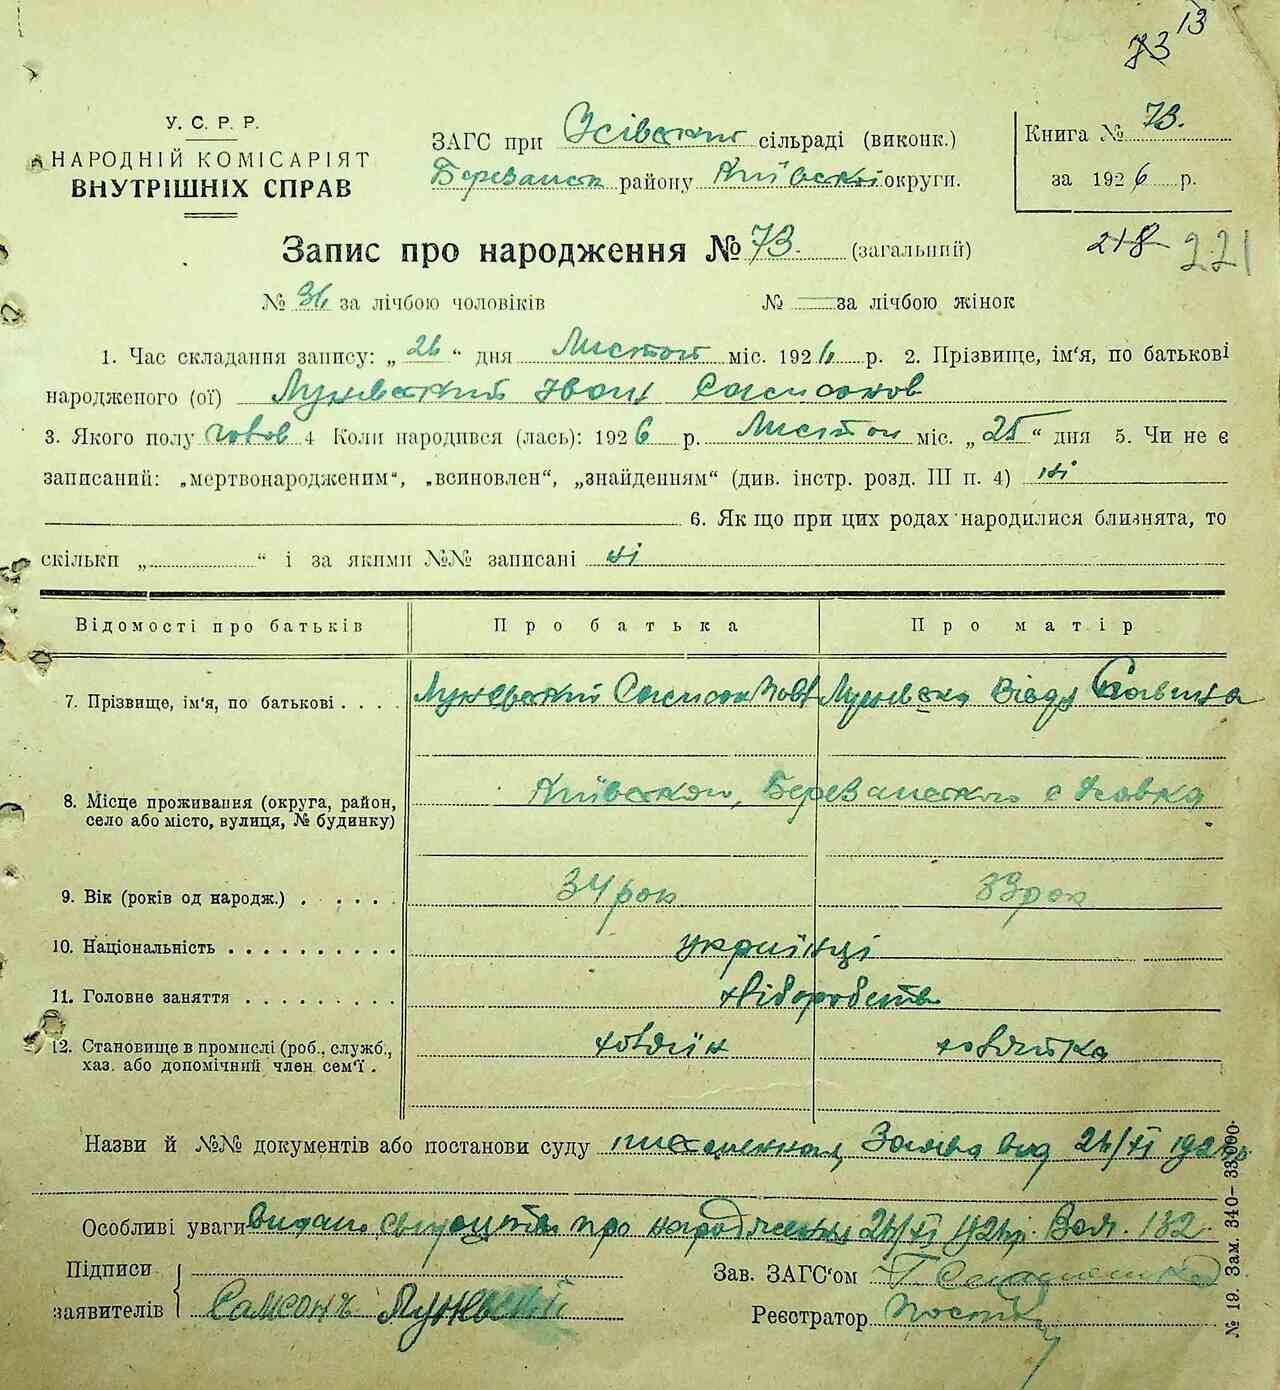 73 13
У. С. Р. Р.
НАРОДНІЙ КОМІСАРІЯТ
ВНУТРІШНІХ СПРАВ
ЗАГС при Усівский сільраді (виконк.)
Березанск району Київскої округи.
Книга № 73.
за 1926 р.
Запис про народження № 73. (загальний)
218 221
№ 36 за лічбою чоловіків № за лічбою жінок
1. Час складання запису: „ 26 “ дня Листоп міс. 1926 р. 2. Прізвище, ім‘я, по батькові
народженого (ої) Лунєвский Іван Самсонов
3. Якого полу чолов 4 Коли народився (лась): 1926 р. Листоп міс. „ 25 “ дня 5. Чи не є
записаний: „мертвонародженим“, „всиновлен“, „знайденням“ (див. інстр. розд. III п. 4) ні
6. Як що при цих родах народилися близнята, то
скільки „ “ і за якими №№ записані ні
Відомості про батьків Про батька Про матір
7. Прізвище, ім‘я, по батькові . . . . Лунєвский Самсон Лунєвска
8. Місце проживання (округа, район, Київскої, Березанського с Усовка
село або місто, вулиця, № будинку)
9. Вік (років од народж.) . . . . . 34 рок 33 рок
10. Національність . . . . . . . . . . українці
11. Головне заняття . . . . . . . . . хліборобств
12. Становище в промислі (роб., служб., хозяїн хозяйка
хаз. або допомічний член сем‘ї .
Назви й №№ документів або постанови суду Заява від 26/XI 1926 р
Особливі уваги видано свідоцтво про народження 26/XI 1926р. 182.
Підписи
заявителів Самсонъ Луневский
Зав. ЗАГС‘ом
Реєстратор
№ 19. Зам. 340–33.000.